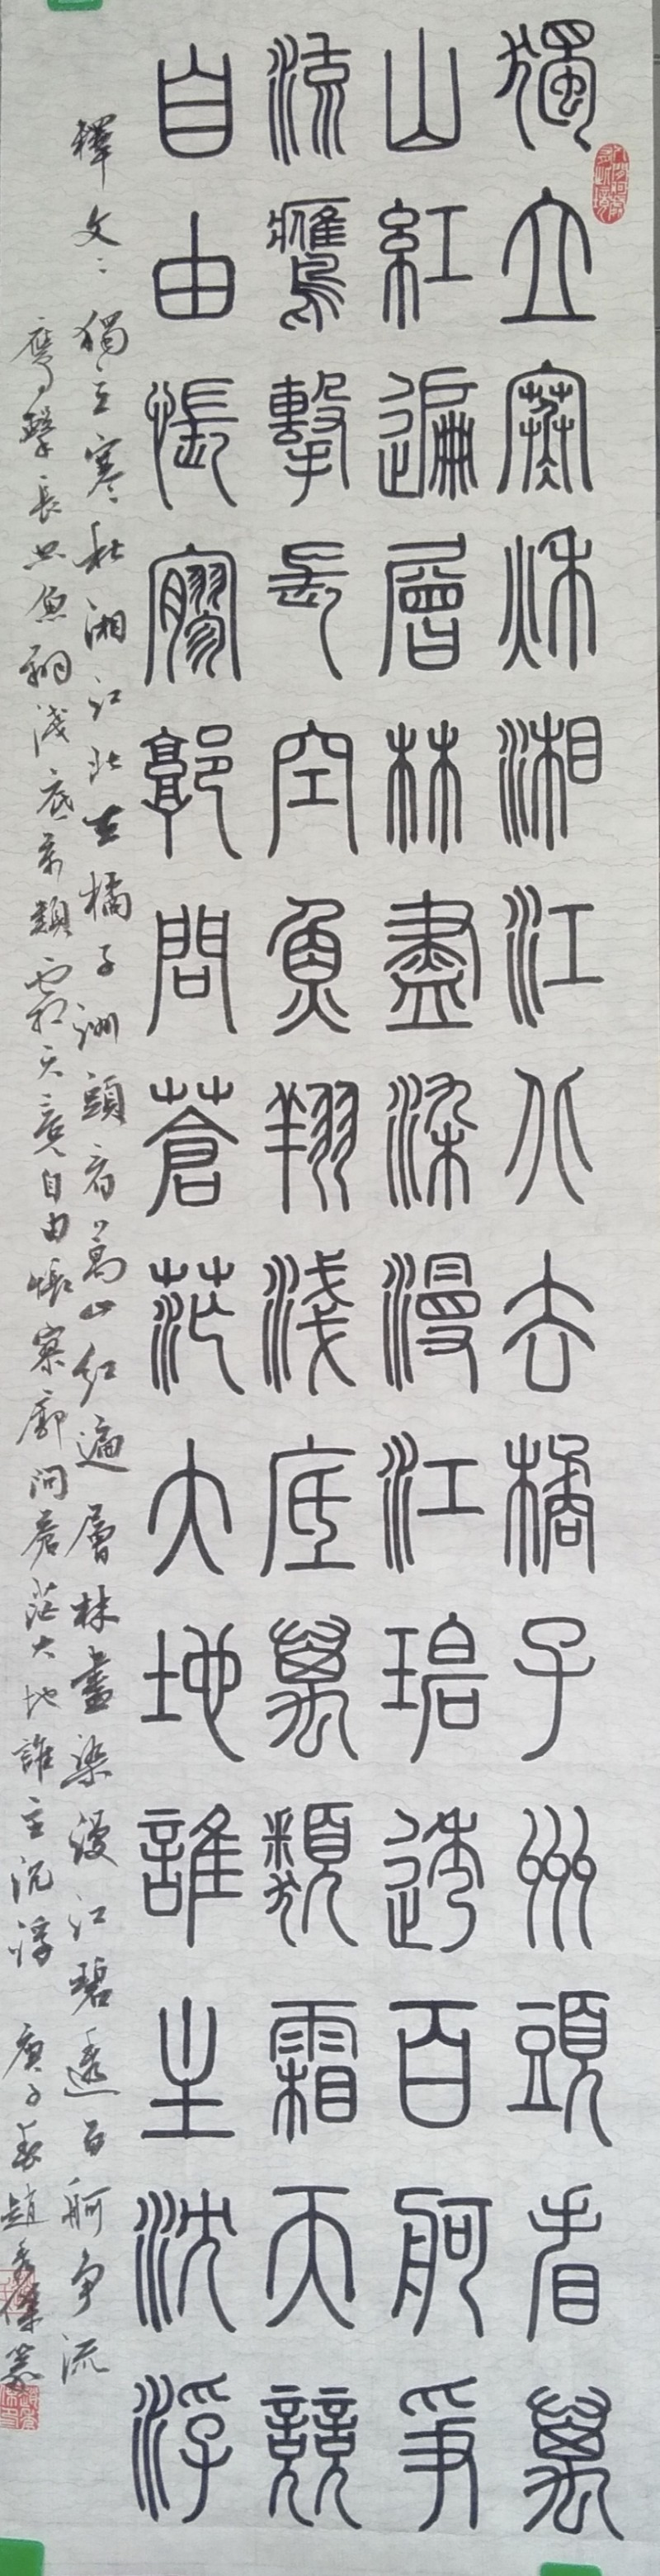 獨立寒秋湘江北去橘子州頭看萬
山紅遍層林盡染漫江碧透百舸爭
流鷹擊長空魚翔淺底萬類霜天競
自由悵寥郭問蒼茫大地誰主沈浮
釋文：獨立寒秋湘江北去橘子洲頭看萬山红遍層林盡染漫江碧透百舸争流
鹰擊長空魚翔淺底萬類霜天竟自由悵寥廓问蒼茫大地誰主沉浮 庚子春趙秀傑篆